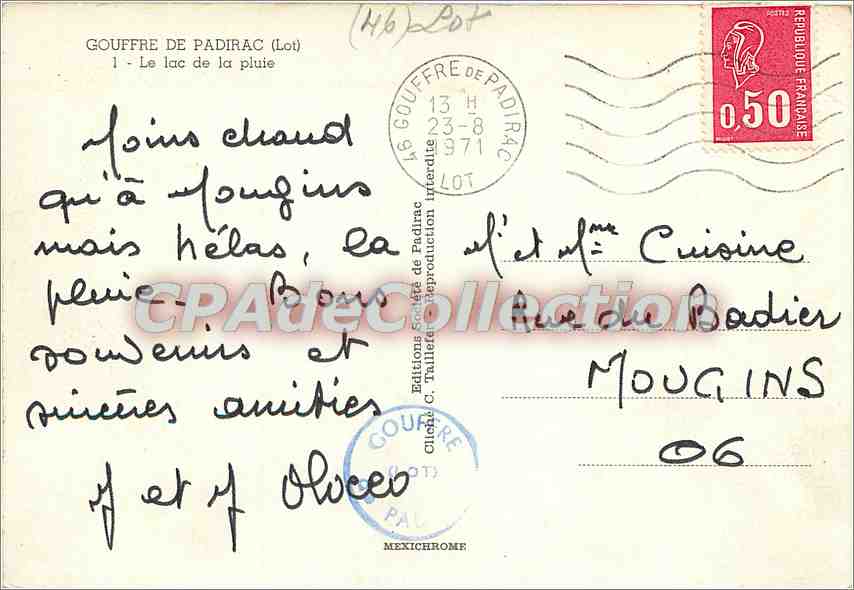 (46) Lot
GOUFFRE DE PADIRAC (Lot)
1 - Le lac de la pluie
46 GOUFFRE DE PADIRAC
13 H
23-8
1971
LOT
POSTES
REPUBLIQUE FRANÇAISE
0,50
Moins chaud
qu'à Mougins
mais hélas, la
pluie - Bons
souvenirs et
sincères amitiés
M et M
Editions Société de Padirac
Cliché C. Taillefer - Reproduction interdite
Mr et Mme Cuisine
Rue du Badier
MOUGINS
06
GOUFFRE
(LOT)
MEXICHROME
CPAdeCollection